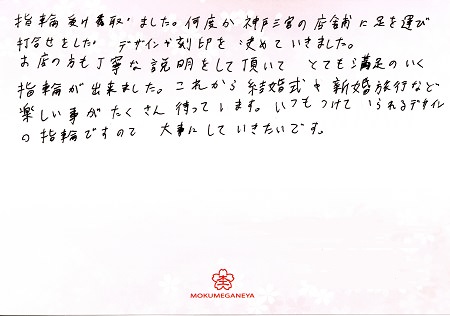 指輪受け取りました。何度か神戸三宮の店舗に足を運び
打合せをした デザインか刻印を決めていきました。
お店の方も丁寧な説明をして頂いて とても満足のいく
指輪が出来ました。これから結婚式や新婚旅行など
楽しい事がたくさん待ってます。いつもつけていられるデザイン
の指輪ですので 大事にしていきたいです。
MOKUMEGANEYA